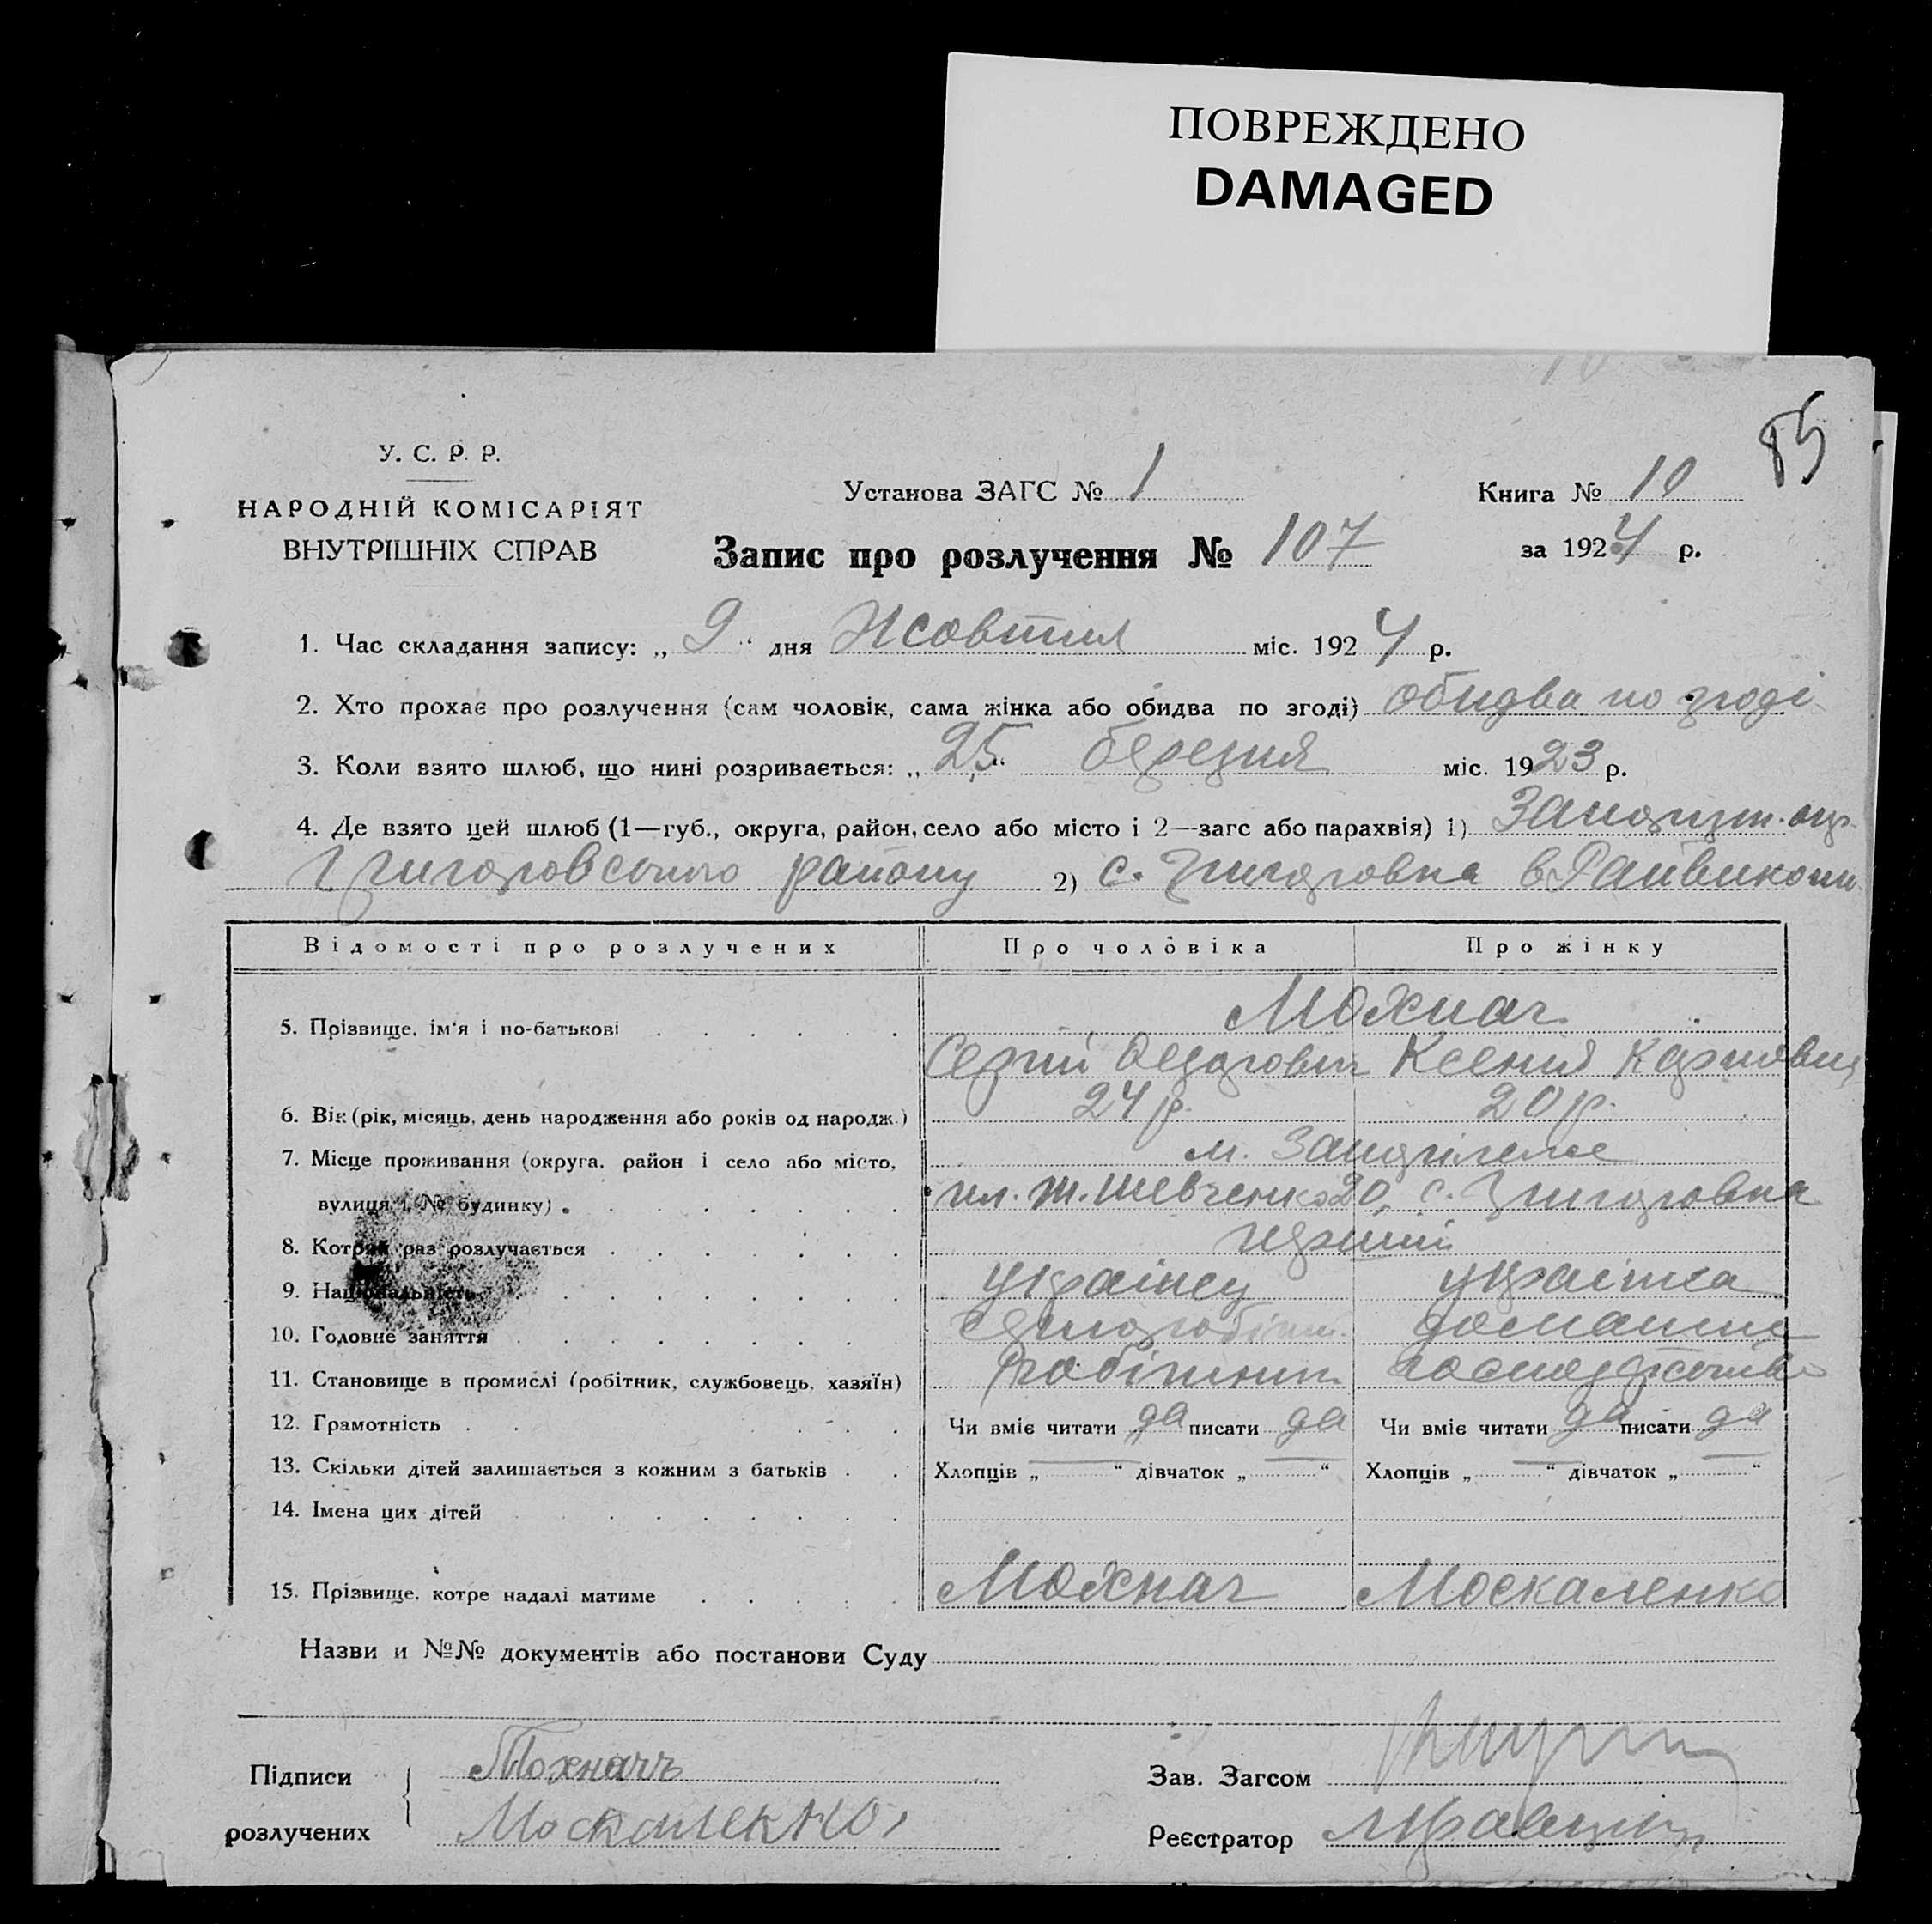 ПОВРЕЖДЕНО
DAMAGED
85
У. С. Р. Р.
НАРОДНІЙ КОМІСАРІЯТ
ВНУТРІШНІХ СПРАВ
Установа ЗАГС № 1
Книга № 10
Запис про розлучення № 107
за 1924 р.
1. Час складання запису: „ 9 “ дня Жовтня міс. 1924 р.
2. Хто прохає про розлучення (сам чоловік, сама жінка або обидва по згоді) обидва по згоді
3. Коли взято шлюб, що нині розривається: „ 25 “ березня міс. 1923 р.
4. Де взято цей шлюб (1—губ., округа, район, село або місто і 2—загс або парахвія) 1) Запоріж. окр.
Григоровського району 2) с. Григоровка в Райвикони
Відомості про розлучених Про чоловіка Про жінку
5. Прізвище, ім'я і по-батькові Мохнач
Сергій Федорович Ксенія Карповна
6. Вік (рік, місяць, день народження або років од народж.) 24 р. 20 р.
7. Місце проживання (округа, район і село або місто, м. Запоріжже
вулиця і № будинку) пл. Т. Шевченко 20, с. Григоровка
8. Котрий раз розлучається перший
9. Національність українец українка
10. Головне заняття домашнє
11. Становище в промислі (робітник, службовець, хазяїн) робітник господжство
12. Грамотність Чи вміє читати да писати да Чи вміє читати да писати да
13. Скільки дітей залишається з кожним з батьків Хлопців „ — “ дівчаток „ — “ Хлопців „ — “ дівчаток „ — “
14. Імена цих дітей
15. Прізвище, котре надалі матиме Мохнач Москаленко
Назви и №№ документів або постанови Суду
Підписи Мохначъ Зав. Загсом
розлучених Москаленко Реєстратор